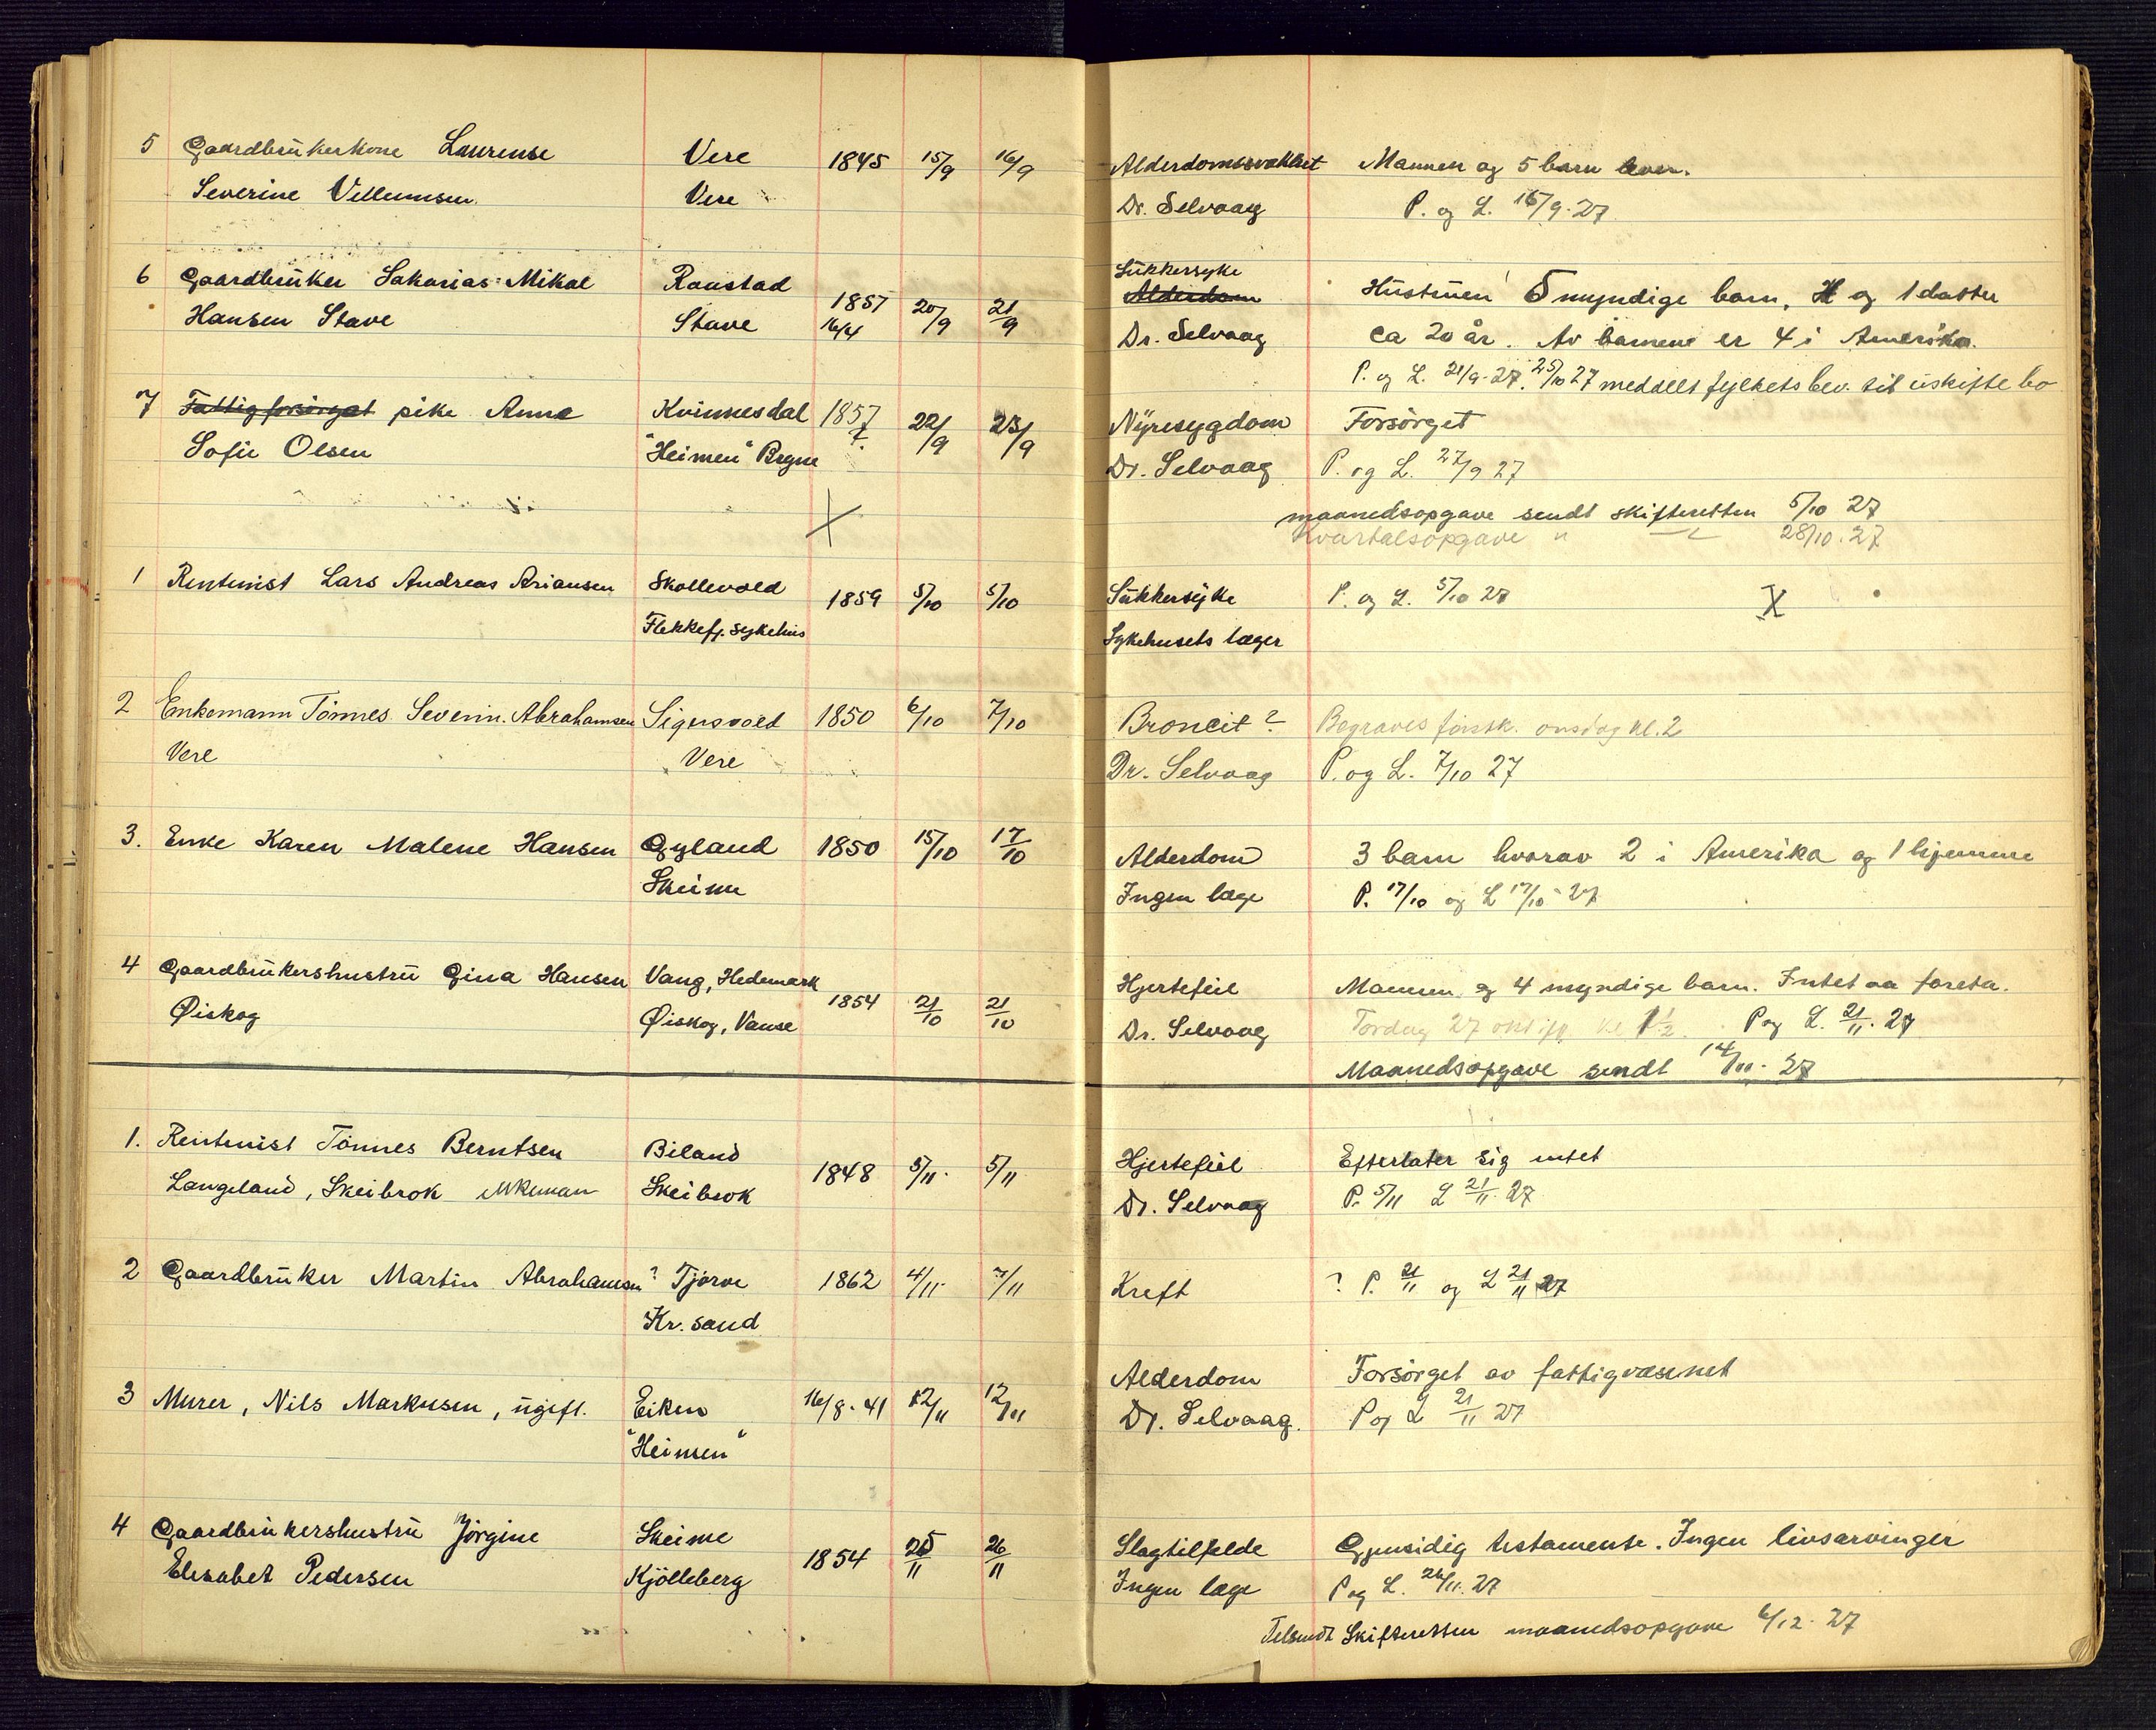 5 Gaardbrükerkone Laurense Vere 1845 15/9 16/9 Alderdomssvakhet Mannen og 5 barn lever.
Severine Villumsen Vere Dr. Selvaag P. og L. 16/9.27
6 Gaardbrüker Sakarias Mikal Raustad 1857 20/9 21/9 Sükkersyke Alderdom Hüstruen 5 myndige barn, og 1 datter
Hansen Stave Stave 16/4 Dr. Selvaag ca 20 år. Av barnene er 4 i Amerika.
P. og L. 21/9.27. 25/10 27 meddelt fylkets bev. til uskifte bo
7 Fattigforsörget pike Anna Kvinnesdal 1857 ? 22/9 23/9 Nyresygdom Forsörget
Sofie Olsen "Heimen" Bryne Dr. Selvaag P. og L. 27/9 27
X maanedsopgave sendt skifteretten 5/10 27
Kvartalsopgave " 28/10.27
1 Rentenist Lars Andreas Ariansen Skollevold 1859 5/10 5/10 Sükkersyke P. og L. 5/10 27 X
Flekkefj. sykehus Sykehusets læger
2 Enkemann Tönnes Severin Abrahamsen Sigersvold 1850 6/10 7/10 Broncit? Begraves onsdag kl. 2
Vere Vere Dr. Selvaag P. og L. 7/10 27
3. Enke Karen Malene Hansen Gyland 1850 15/10 17/10 Alderdom 3 barn hvorav 2 i Amerika og 1 hjemme
Skeime Ingen læge P. 17/10 og L 17/10 27
4 Gaardbrükershustrü Gina Hansen Vang, Hedemark 1854 21/10 21/10 Hjertefeil Mannen og 4 myndige barn. Intet aa foreta.
Øiskog Øiskog, Vanse Dr. Selvaag Torsdag 27 kl 1½ P og L. 21/11.27
Maanedsopgave sendt 14/11.27
1. Rentenist Tönnes Berntsen Biland 1848 5/11. 5/11 Hjertefeil Efterlater sig intet
Langeland, Skeibrok enkeman Skeibrok Dr. Selvaag P. 5/11 L 21/11.27
2 Gaardbrüker Martin Abrahamsen ? Tjörve 1862 4/11. 7/11 Kreft ? P. 21/11 og L 21/11 27
Kr. sand
3 Murer, Nils Markusen, ügift. Eiken 16/8.41 12/11 12/11 Alderdom Forsörget av fattigvæsenet
"Heimen" Dr. Selvaag. P og L 21/11 27
4 Gaardbrükershustrü Jörgine Skeime 1854 25/11 26/11 Slagtilfelde Gjensidig testamente. Ingen livsarvinger
Elisabet Pedersen Kjölleberg Ingen læge P og L. 26/11.27
Tilsendt Skifteretten maanedsopgave 6/12.27